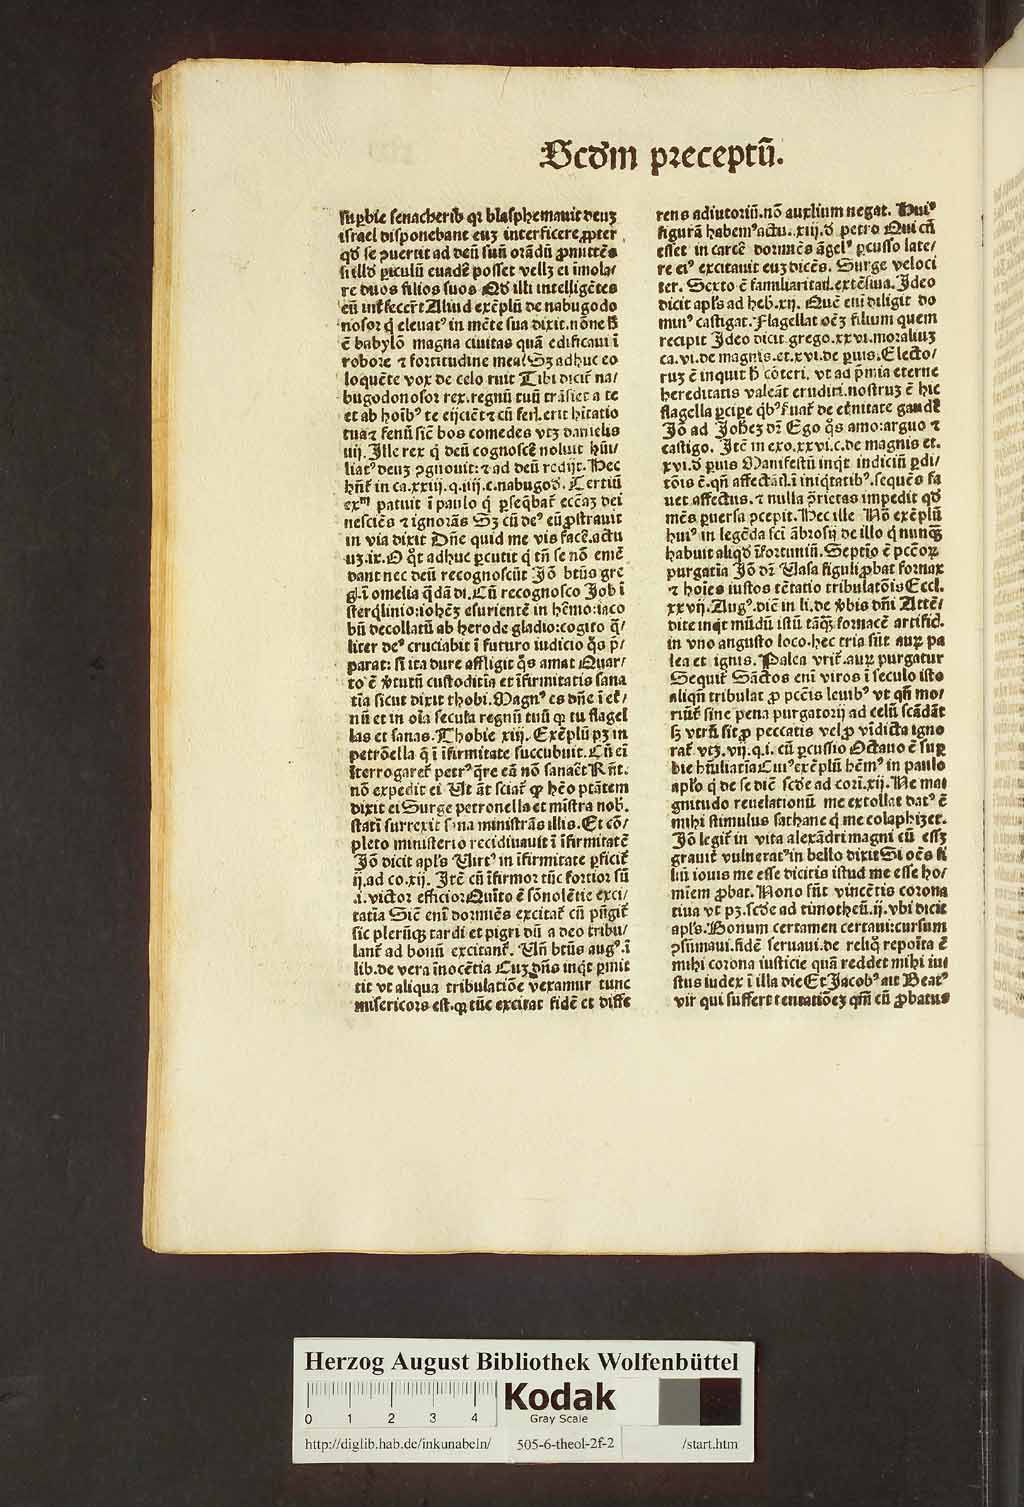 Scḋm preceptū.
suꝑbie senacherib qꝛ blasphemauit deuꝫ
israel disponebant euꝫ interficere, ꝓpter
qḋ se ꝯuertit ad deū suū orādū ꝓmittēs
si illḋ ꝑiculū euadē posset vellꝫ ei īmola/
re duos filios suos Qḋ illi intelligētes
eū int̄fecer̄t Aliud exēplū de nabugodo
nosor q̇ eleuatꝰ in mēte sua dixit. nōne h̄
ē babylō magna ciuitas quā edificaui ī
robore ⁊ fortitudine mea/ Sꝫ adhuc eo
loquēte vox de celo ruit Tibi dicit̄ na/
bugodonosor rex. regnū tuū trāsiet a te
et ab hoīb⁹ te eijciēt ⁊ cū feris erit hītatio
tua ⁊ fenū sic̄ bos comedes vtꝫ danielis
iiij. Ille rex q̇ deū cognoscē noluit hūi/
liatꝰ deuꝫ ꝯgnouit: ⁊ ad deū redijt. Hec
hn̄t̄ in ca. xxiij. q. iiij. c. nabugoḋ. Tertiū
exᵐ patuit ī paulo q̇ ꝑseq̄bat̄ ecc̄aꝫ dei
nesciēs ⁊ ignorās Sꝫ cū deꝰ eū ꝓstrauit
in via dixit Dn̄e quid me vis facē. actu
uꝫ. ix. O qͦt adhuc ꝑcutit q̇ tn̄ se nō emē
dant nec deū recognoscūt Iō btūs gre
g. ī omelia q̄dā di. Cū recognosco Job ī
sterq̇linio: iohēꝫ esurientē in h̄emo: iaco
bū decollatū ab herode gladio: cogito q̄/
liter deꝰ cruciabit ī futuro iudicio q̊s p̄/
parat: si ita dure affligit q̊s amat Quar/
to ē ꝟtutū custoditīa et īfirmitatis sana
tīa sicut dixit thobi. Magnꝰ es dn̄e ī et̄/
nū et in oīa secula regnū tuū qꝛ tu flagel
las et sanas. Thobie xiij. Exēplū pꝫ in
petrōella q̄ ī īfirmitate succubuit. Cū eī
īterrogaret̄ petrꝰ q̄re eā nō sanaēt Rn̄t.
nō expedit ei Ut āt sciat̄ ꝙ hēo ptātem
dixit ei Surge petronella et mīstra nob̄.
statī surrexit sana ministrās illis. Et cō/
pleto ministerio recidiuauit ī īfirmitatē
Iō dicit apl̄s Uirtꝰ in īfirmitate ꝑficit̄
ij. ad co. xij. Itē cū īfirmor tūc fortior sū
.i. victor efficior Quīto ē sōnolētie exci/
tatīa Sic̄ enī dormiēs excitat̄ cū pūgit̄
sic pleriqꝫ tardi et pigri dū a deo tribu/
lant̄ ad bonū excitant̄. Un̄ btūs augꝰ. ī
lib. de vera īnocētia Cuꝫ dn̄s inq̇t ꝑmit
tit vt aliqua tribulatiōe vexamur tunc
misericors est. qꝛ tūc excitat fidē et diffe
rens adiutoriū. nō auxlium negat. Huiꝰ
figurā habemꝰ actu. xij. ḋ petro Qui cū
esset in carcē dormiēs āgelꝰ ꝑcusso late/
re eiꝰ excitauit euꝫ dicēs. Surge veloci
ter. Sexto ē familiaritatis extēsiua. Ideo
dicit apl̄s ad heb. xij. Quē enī diligit do
minꝰ castigat. Flagellat oēꝫ filium quem
recipit Ideo dicit grego. xxvi. moraliuꝫ
ca. vi. de magnis. et. xvi. de ꝑuis. Electo/
ruꝫ ē inquit h̄ cōteri. vt ad p̄mia eterne
hereditatis valeāt erudiri. nostruꝫ ē hic
flagella ꝑciꝑe q̇bꝰ ẜuat̄ de et̄nitate gaudē
Iō ad Johēꝫ dr̄ Ego q̊s amo: arguo ⁊
castigo. Itē in exo. xxvi. c. de magnis et.
xvi. ḋ ꝑuis Manifestū inq̇t indiciū ꝑdi/
tōis ē. qn̄ affectātis īiniq̇tatibꝰ. sequēs fa
uet affectus. ⁊ nulla ꝯrietas impedit qḋ
mēs ꝑuersa ꝯcepit. Hec ille Nō exēplū
huiꝰ in legēda sci āmbrosij de illo q̇ nunqꝫ
habuit aliqḋ īfortuniū. Septīo ē pcc̄oꝝ
purgatīa Iō dr̄ Uasa figuli ꝓbat fornax
⁊ hoīes iustos tētatio tribulatōis Eccl.
xxvij. Augꝰ. dic̄ in li. de ꝟbis dn̄i Attē/
dite inq̇t mūdū istū tāqꝫ fornacē artificis.
in vno angusto loco. hec tria sūt auꝝ pa
lea et ignis. Palea vrit̄. auꝝ purgatur
Sequit̄ Sāctos enī viros ī seculo isto
aliqn̄ tribulat ꝓ pcc̄is leuibꝰ vt qn̄ mo/
riūt̄ sine pena purgatorij ad celū scādāt
sꝫ vtrū sit ꝓ peccatis vel ꝓ vīdicta igno
rat̄ vtꝫ. vij. q. i. cū ꝑcussio Octauo ē suꝑ
bie hūiliatīa Cuiꝰ exēplū hēmꝰ in paulo
apl̄o q̇ de se dic̄ scḋe ad cori. xij. Ne ma
gnitudo reuelationū me extollat datꝰ ē
mihi stimulus sathane q̇ me colaphiꝫet.
Iō legit̄ in vita alexādri magni cū essꝫ
grauit̄ vulneratꝰ in bello dixit Si oēs fi
liū iouis me esse dicitis istud me esse ho/
mīem ꝓbat. Nono sūt vincētis corona
tiua vt pꝫ. scḋe ad timotheū. ij. vbi dicit
apl̄s. Bonum certamen certaui: cursum
ꝯsūmaui. fidē seruaui. de reliq̊ reposita ē
mihi corona iusticie quā reddet mihi iu
stus iudex ī illa die Et Jacobꝰ ait Beatꝰ
vir qui suffert tentatiōeꝫ qm̄ cū ꝓbatus
Herzog August Bibliothek Wolfenbüttel
0 1 2 3 4
Kodak
Gray Scale
http://diglib.hab.de/inkunabeln/ 505-6-theol-2f-2 /start.htm